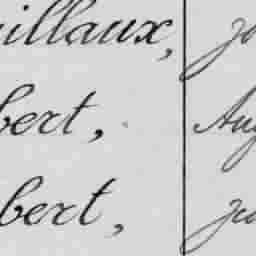 illaux, jo
bert, Aug
bert, jea